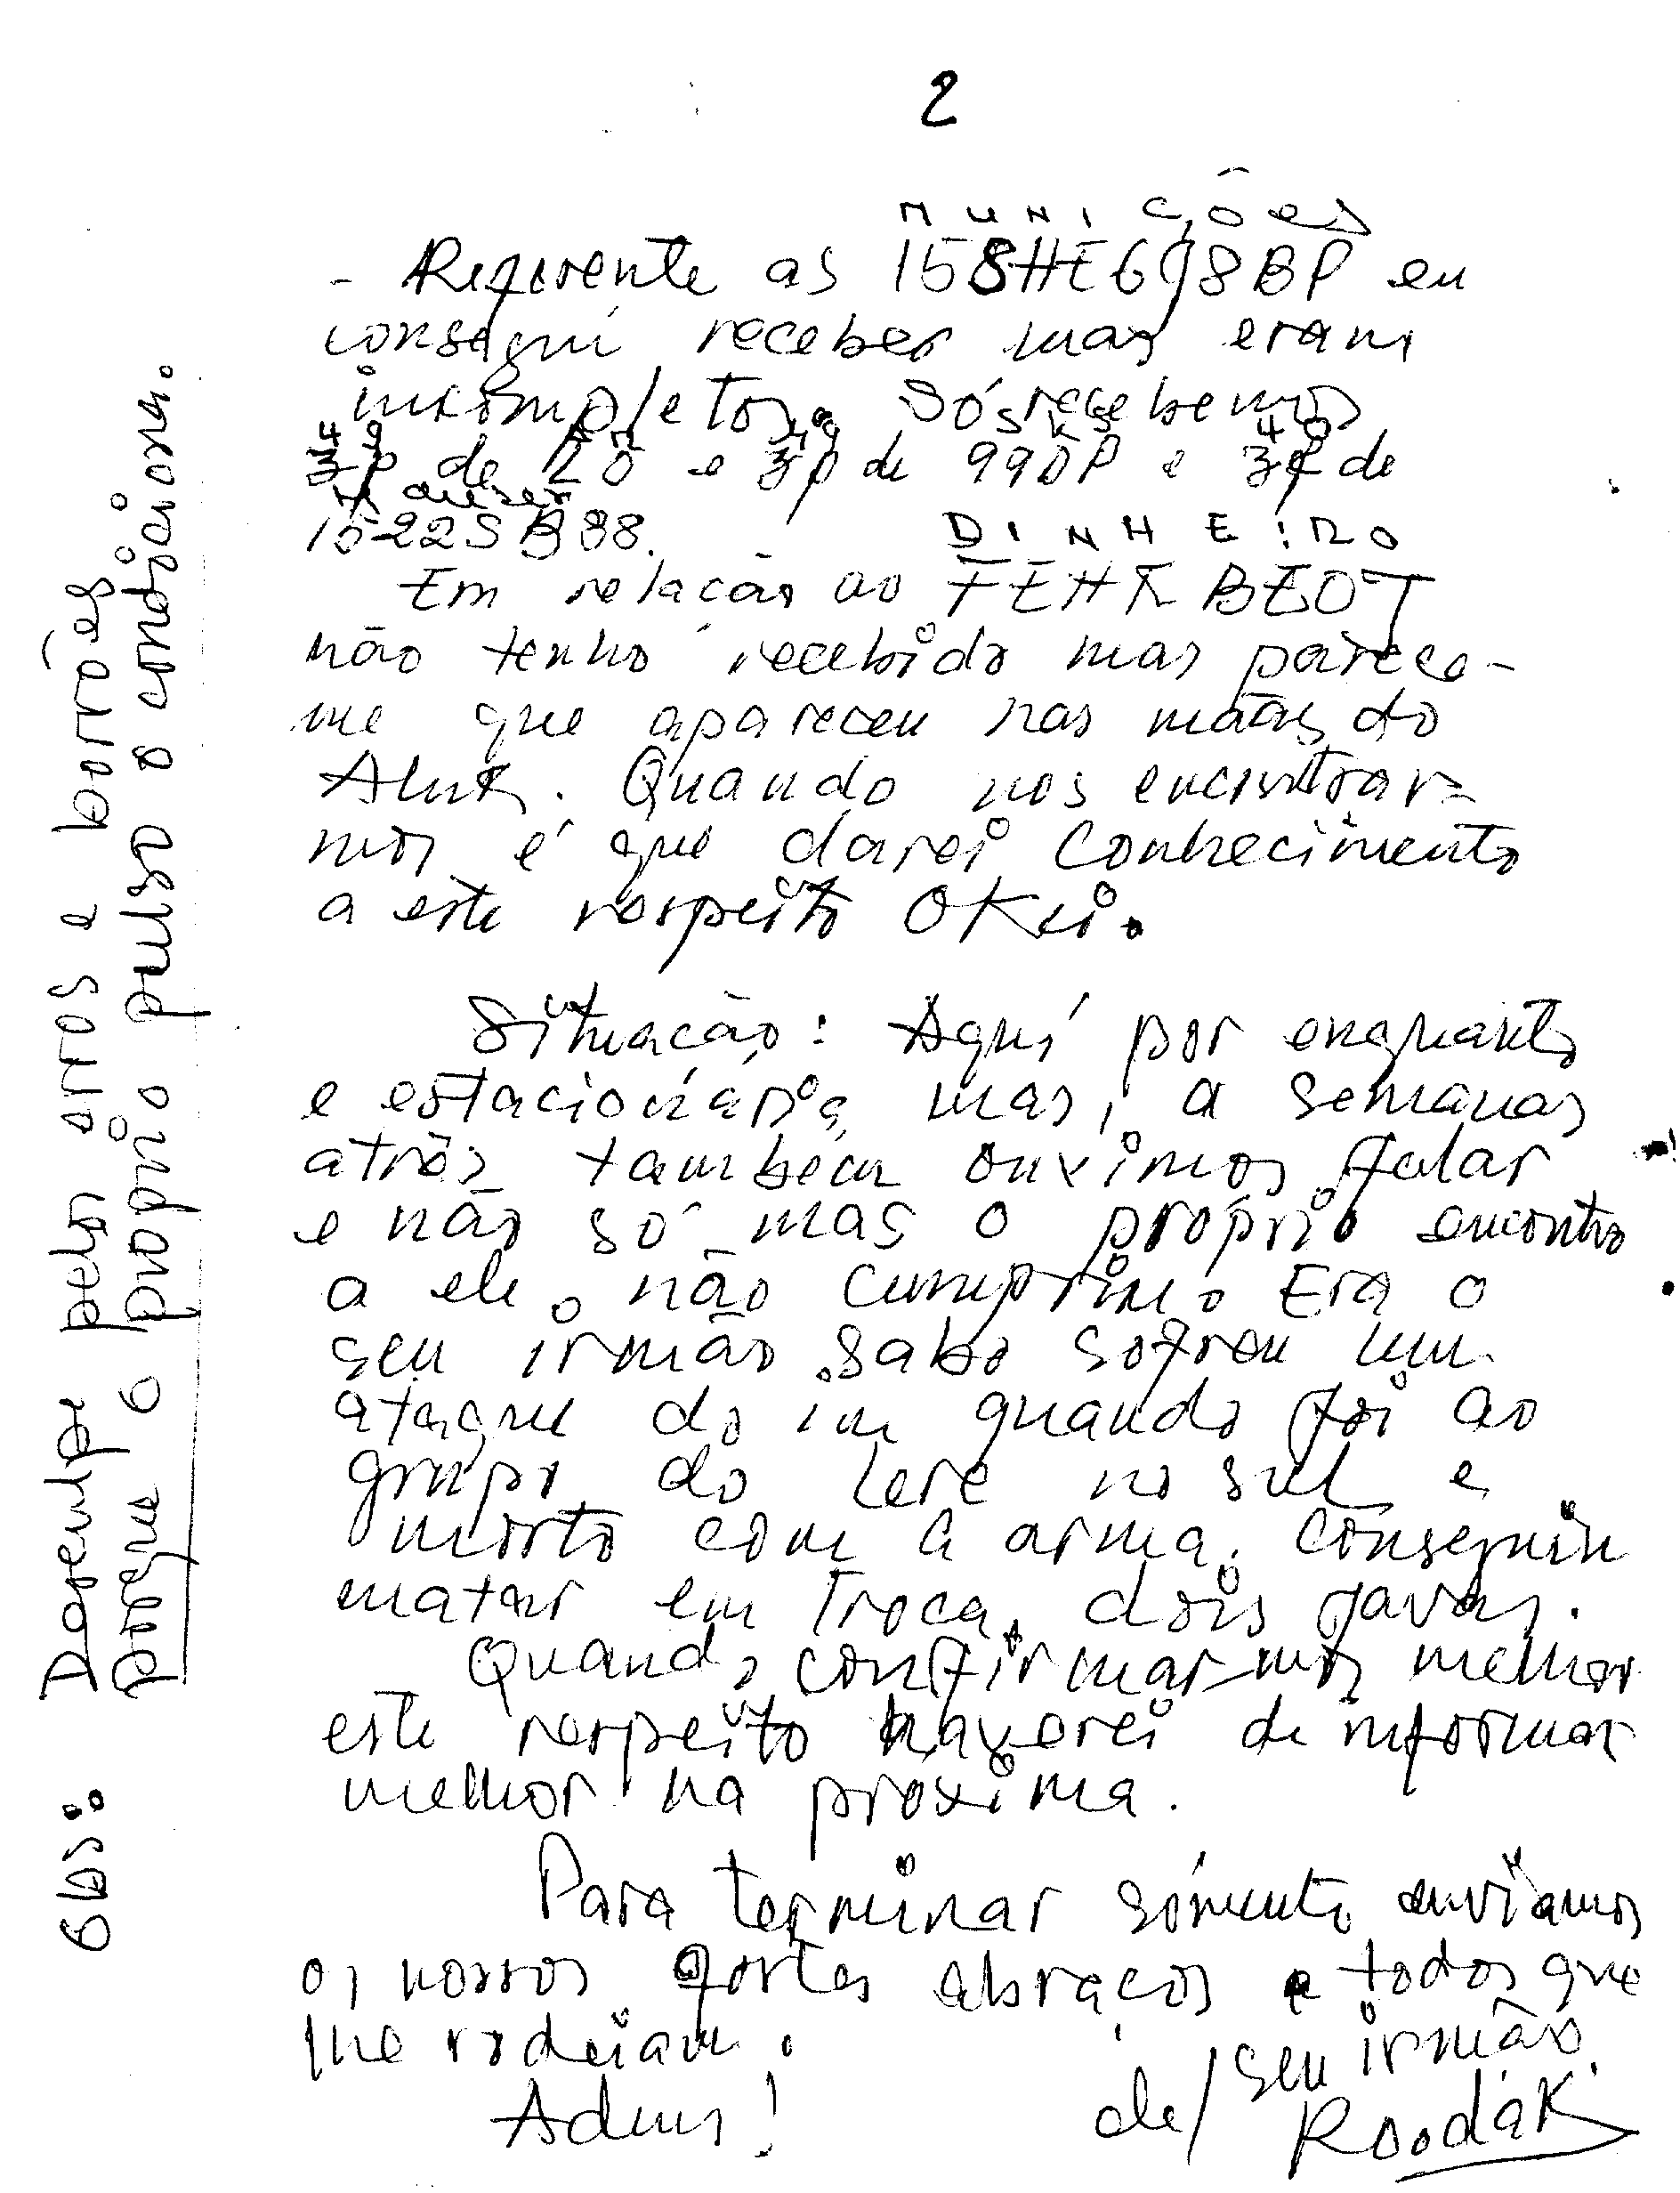 2
MUNIÇÕES
- Referente as 158HE698BP eu
consegui receber mas eram
incompletos. Só recebemos
de e 30 de 99DP e de
Mauser
15-22SB88.
DINHEIRO
Em relação ao FEHKBEOT
não tenho recebido mas parece-
me que apareceu nas mãos do
Aluk. Quando nos encontrar-
mos é que darei conhecimento
a este respeito OKei.
Situação: Aquí por enquanto
e estacionária, mas, a semanas
atrás também ouvimos falar
e não só mas o próprio encontro
a ele não cumprim. Era o
seu irmão sabo sofreu um
ataque do in quando foi ao
grupo do Lere no sul e
morto com a arma. Conseguiu
matar em troca, dois javas.
Quando confirmar-mos melhor
este respeito haverei de informar
melhor na proxima.
Para terminar sómente enviamos
os nossos fortes abraços e todos que
lhe rodeiam.
Adeus! de/ seu irmão
Roodak
Obs: Desculpe pelos erros e borrões
porque o proprio pulso o condiciona.